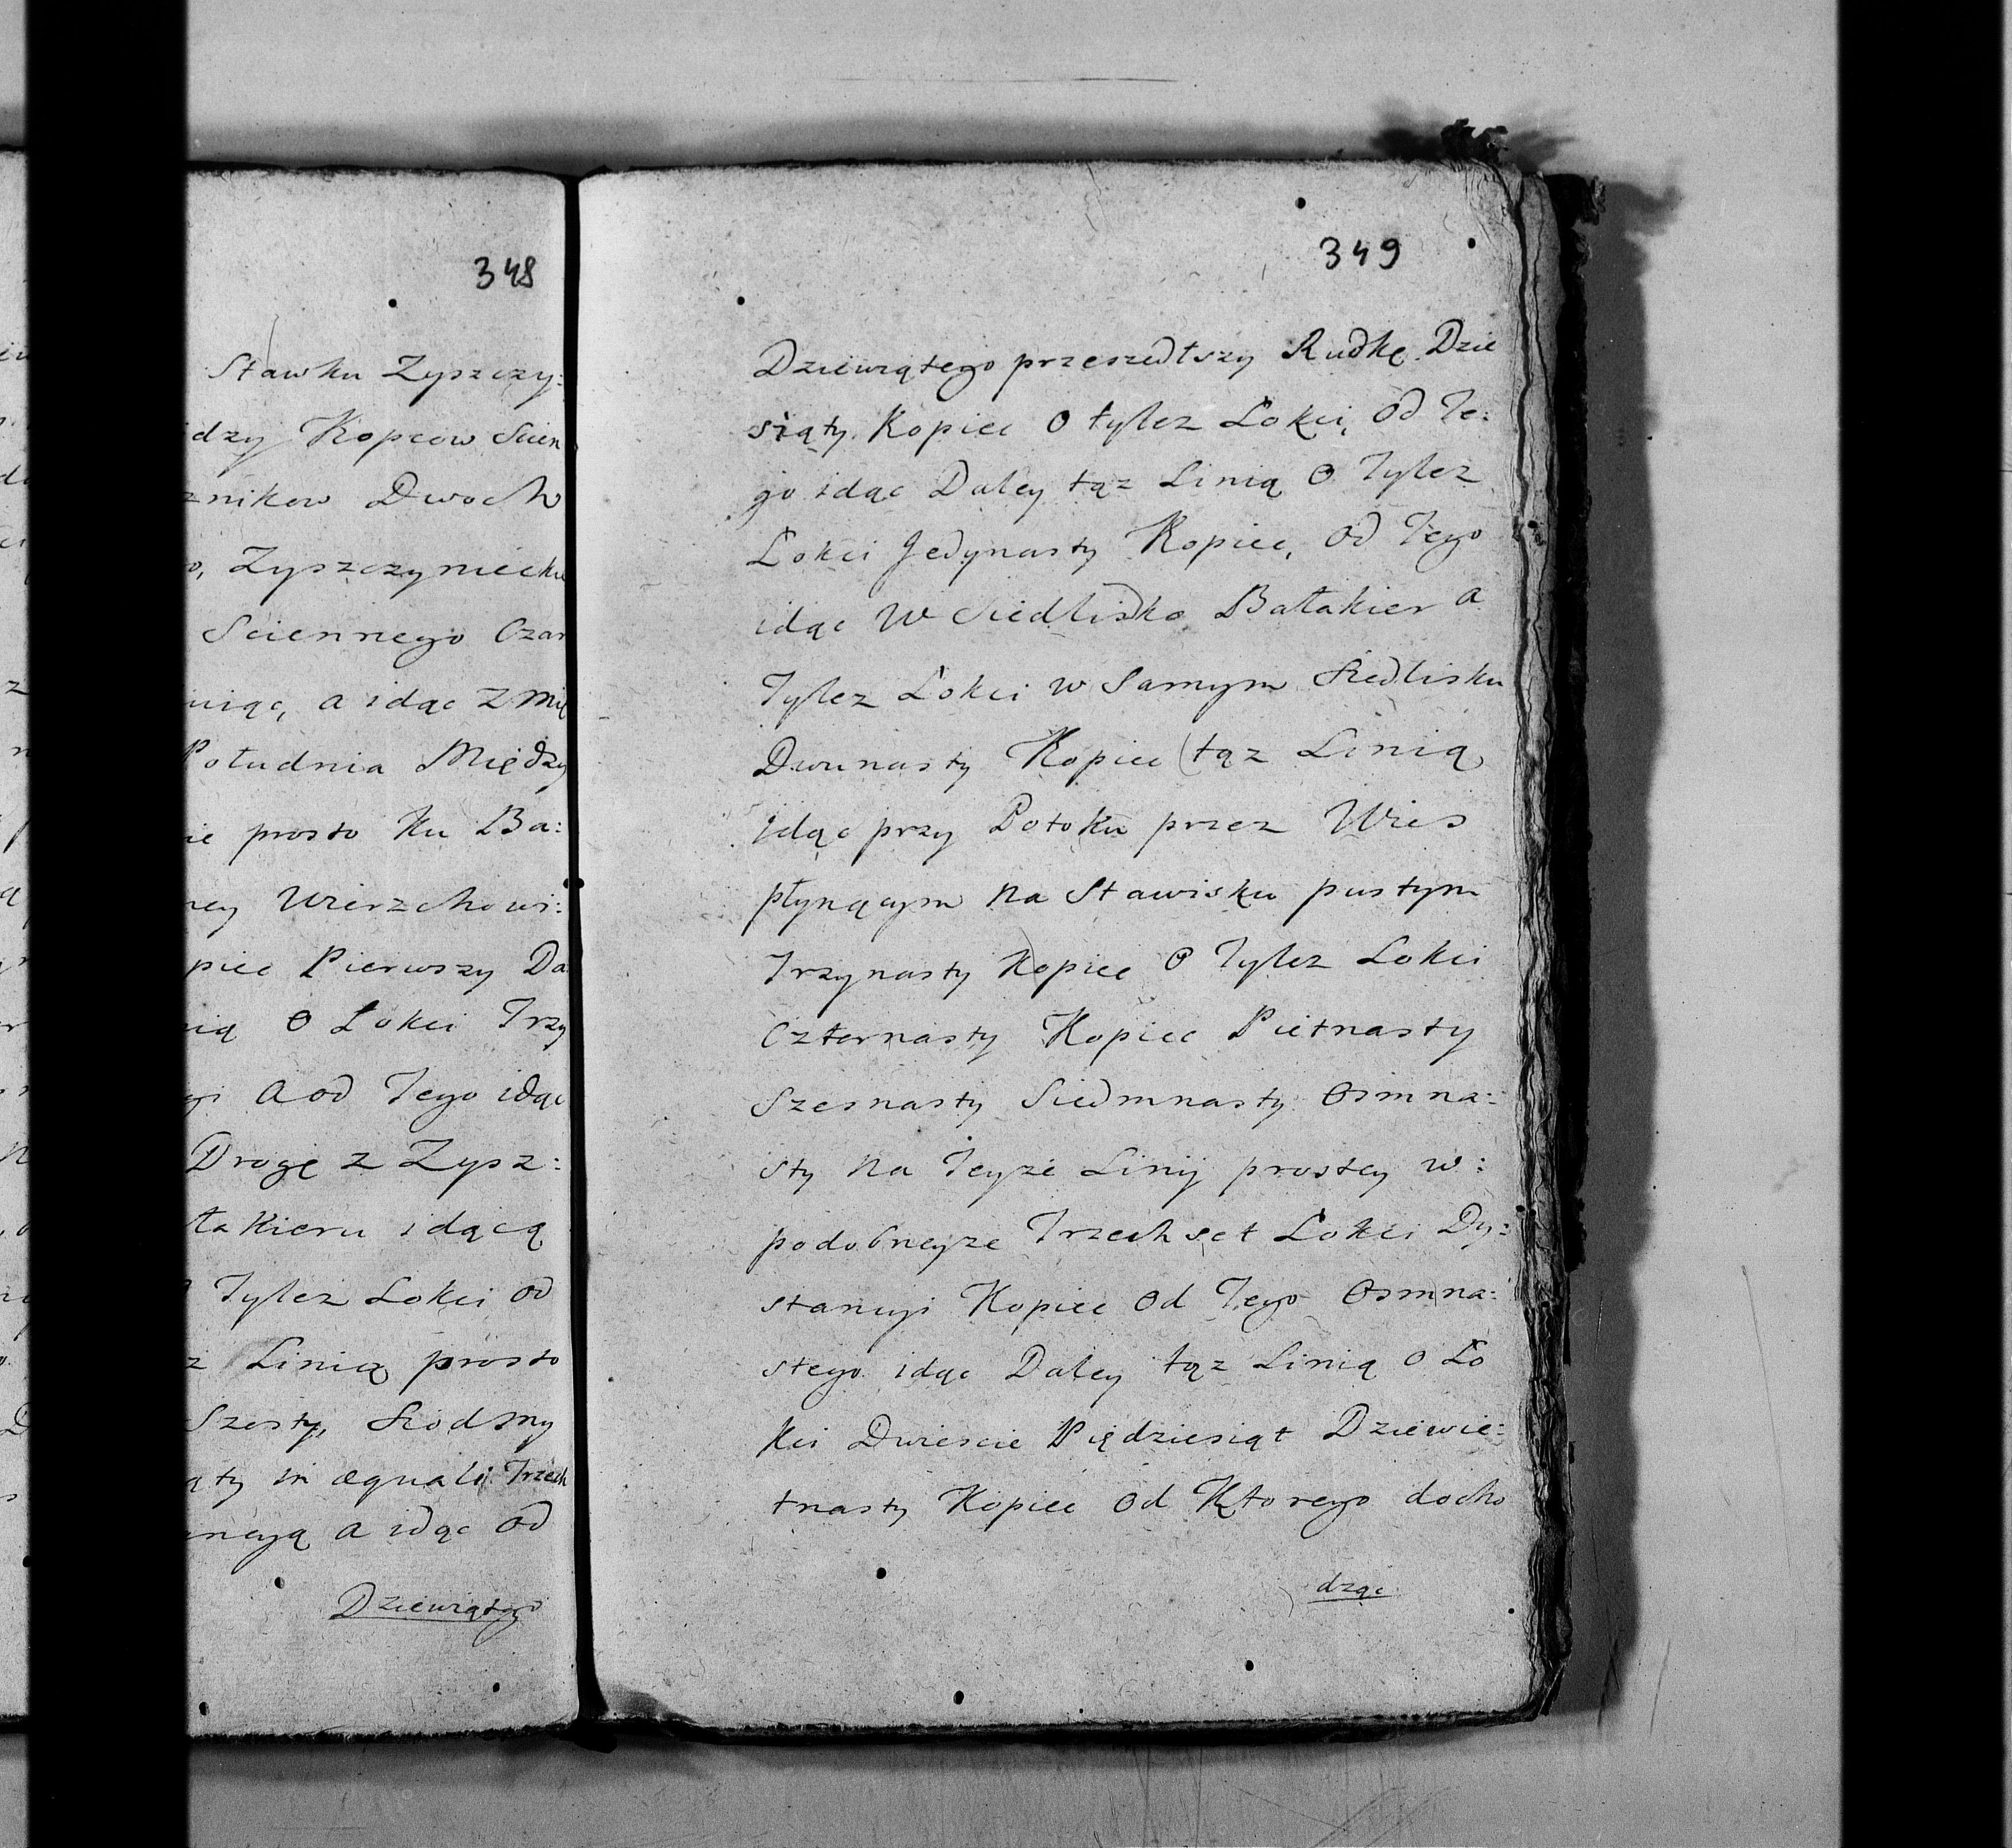 348
Stawku Zyszczy:
dzy Kopcow Scien
znikow Dwoch
o, Zyszczyniecku
Sciennego Czar
niąc, a idąc z mię
Południa Między
ie prosto ku Ba:
ney Wierzchowi:
piec Pierwszy Da
nią o Łokci Trzy
gi a od Tego idąc
Drogę z Zysz:
łakieru idącą
Tylez Łokci od
z Linią prosto
Szosty, Siodmy
ąty in æquali Trzech
ncyą a idąc od
Dziewiątego
349
Dziewiątego przeszedłszy Rudkę Dzie
siąty Kopiec o tylez Łokci, od Te:
go idąc Daley tąz Linią o Tylez
Łokci Jedynasty Kopiec, od Tego
idąc w Siedlisko Bałakier a
Tylez Łokci w Samym Siedlisku
Dwunasty Kopiec (tąz Linią
idąc przy Potoku przez Wies
płynącym na Stawisku pustym
Trzynasty Kopiec o Tylez Łokci
Czternasty Kopiec Pietnasty
Szesnasty Siedmnasty Osmna:
sty na Teyze Linij prostey w:
podobneyze Trzechset Łokci Dy:
stancyi Kopiec od Tego Osmna:
stego idąc Daley tąz Linią o Ło
kci Dwiescie Piędziesiąt Dziewie:
tnasty Kopiec od Ktorego docho
dząc